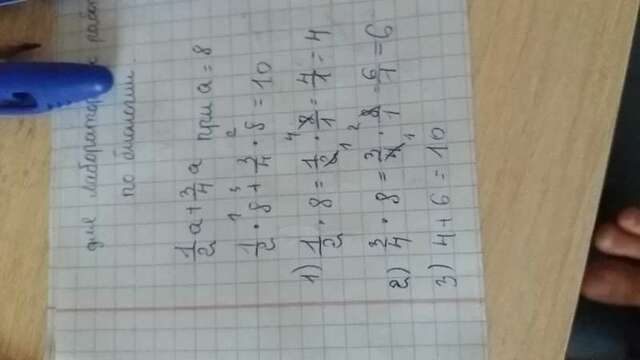 для лабораторных работ
по биологии.
1/2 a + 3/4 a при a = 8
1/2 ·¹ 8 +³ 3/4 ·² 8 = 10
1) 1/2 · 8 = 1/2 · 8/1 = 4/1 = 4
2) 3/4 · 8 = 3/4 · 8/1 = 6/1 = 6
3) 4 + 6 = 10